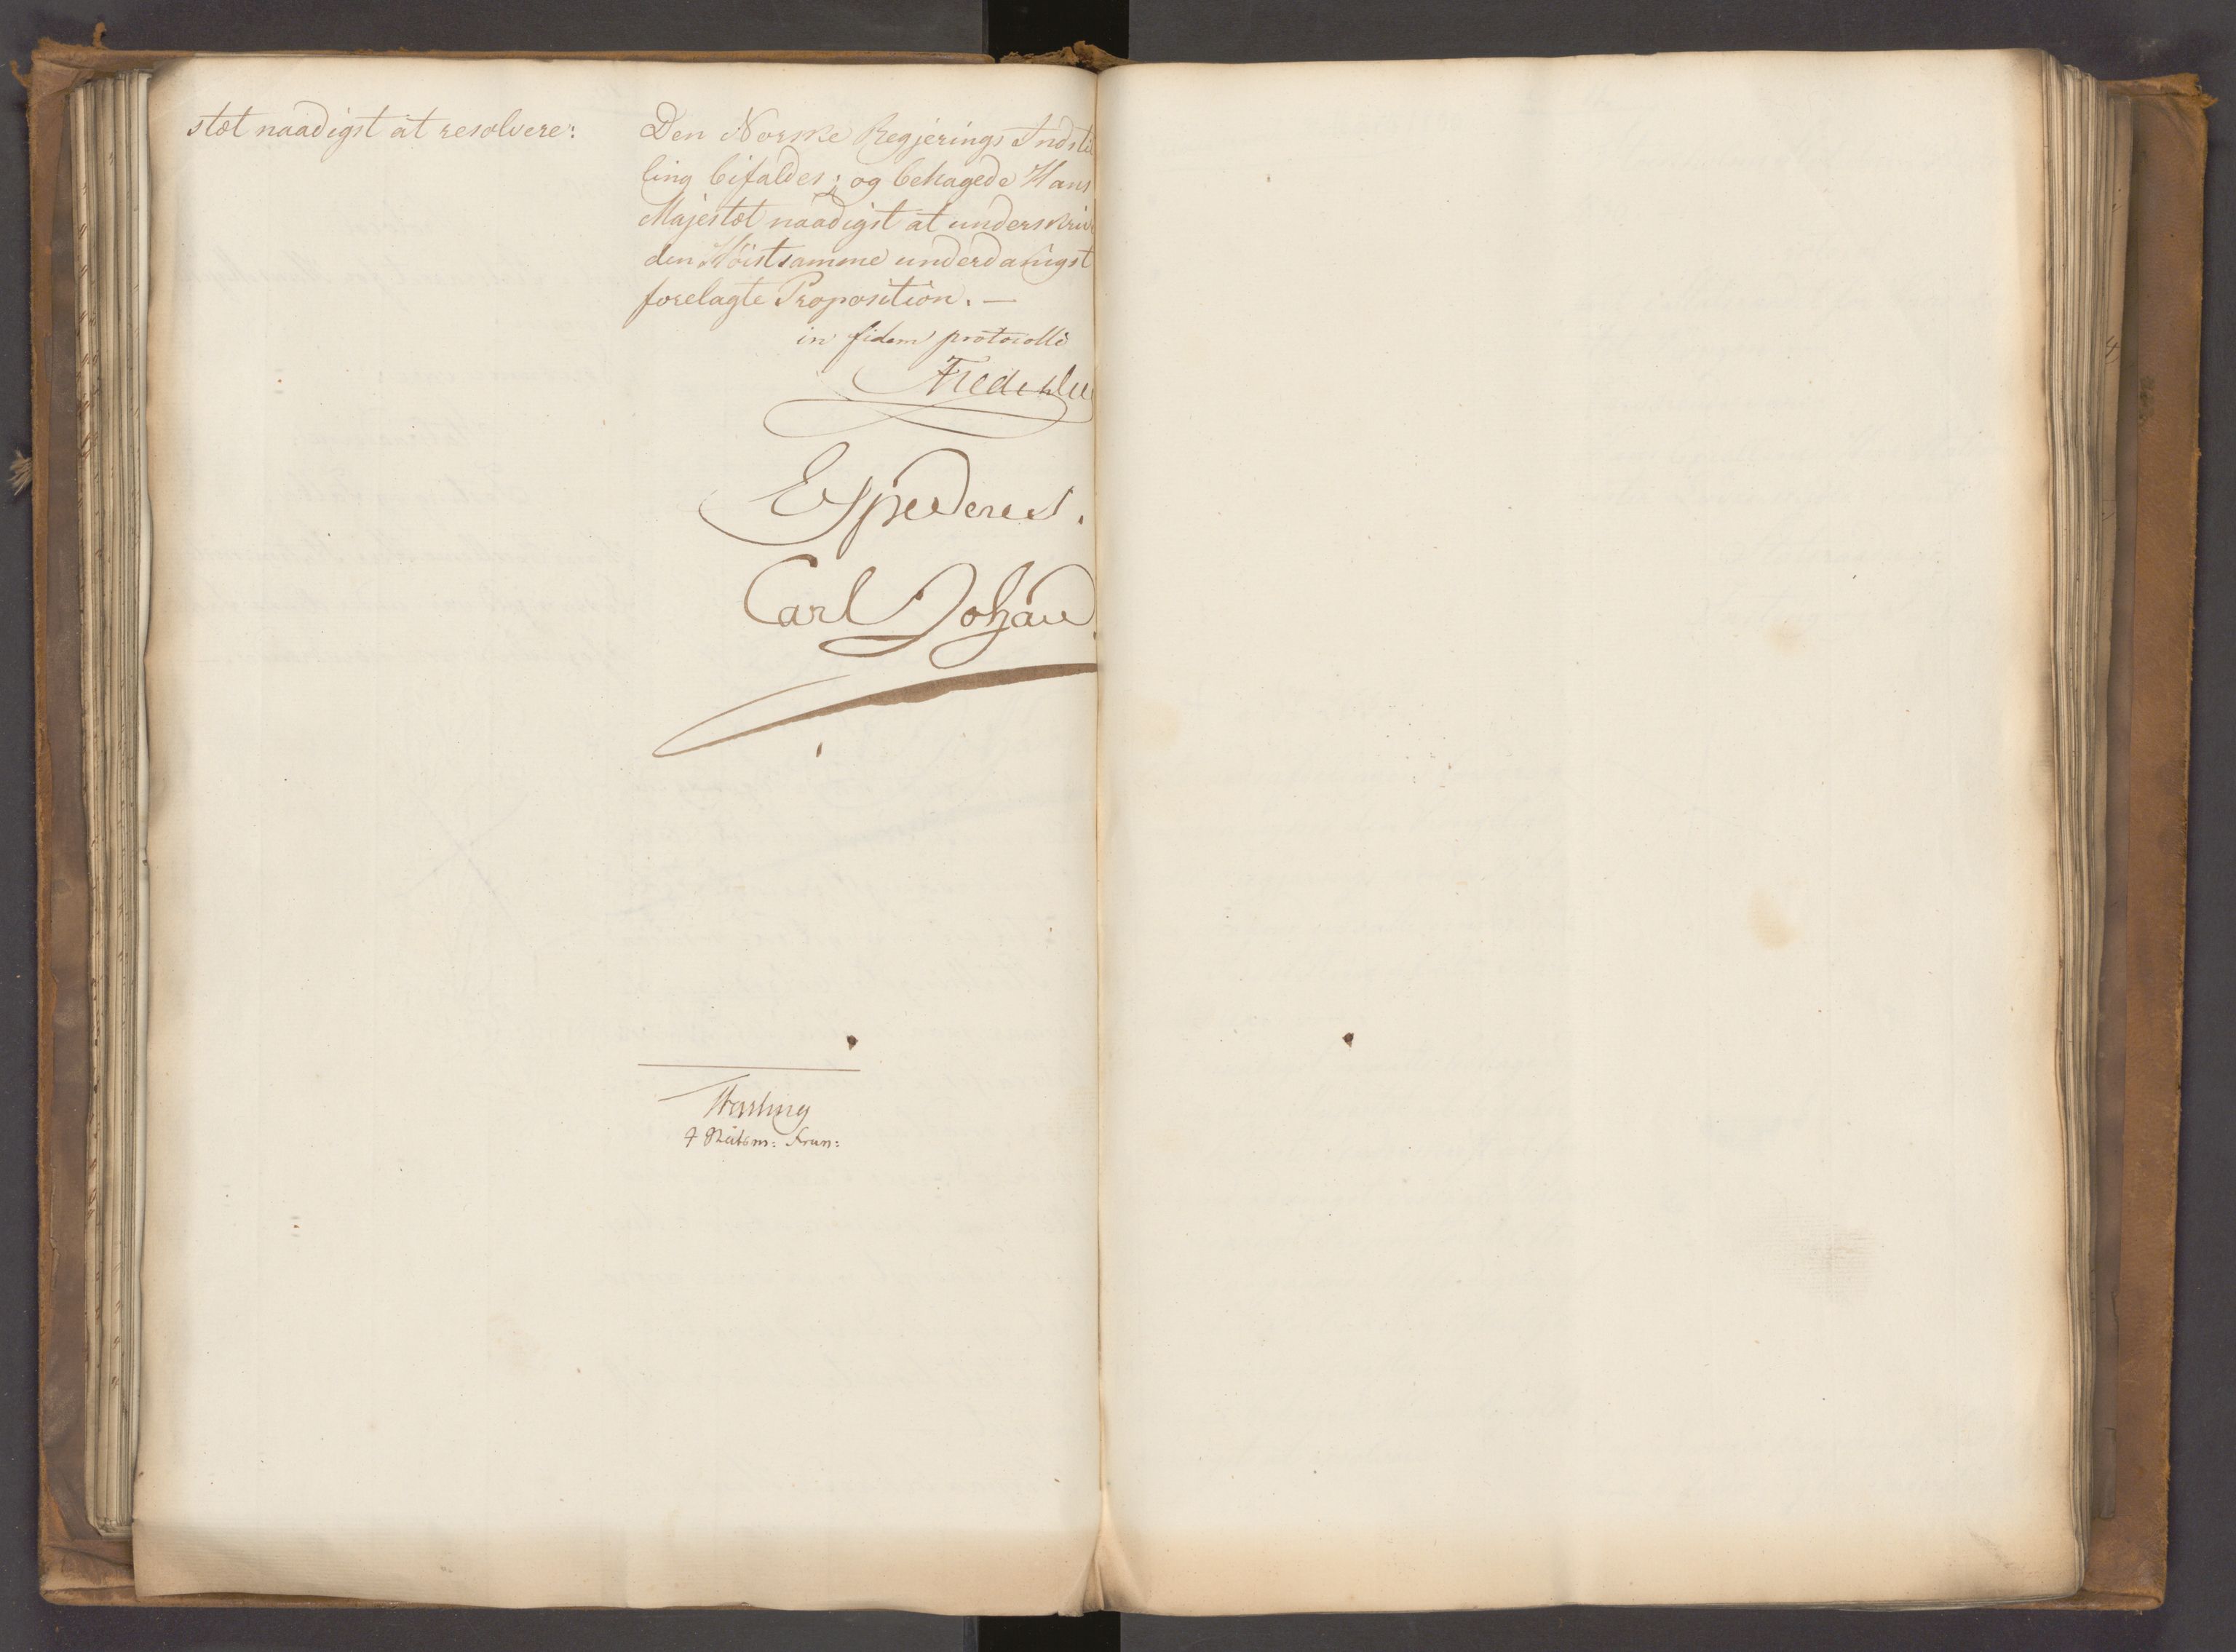 stæt naadigst at resolvere:
Den Norske Regjerings Indstil
ling bifaldes; og behagede Hans
Majestæt naadigst at underskriv
den Høistsamme underdanigst
forelagte Proposition. —
in fidem protocolli
Expederes.
Carl Johan